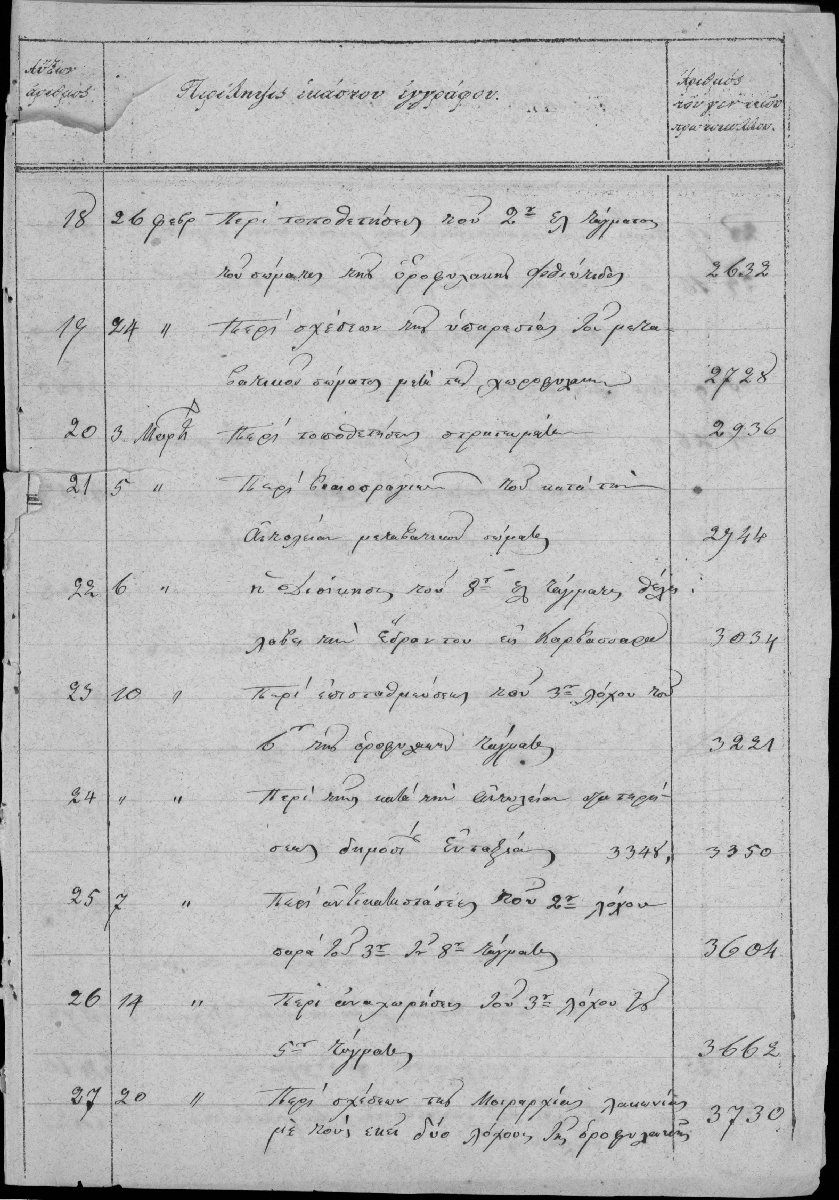 Αὔξων
ἀριθμός
Περίληψις ἑκάστου ἐγγράφου.
Ἀριθμός
τοῦ γενικοῦ
πρωτοκόλλου.
18 26 φεβρ Περὶ τοποθετήσεως τοῦ 2ου ἐλ τάγματος
τοῦ σώματος τῆς ὁροφυλακῆς Φθιώτιδος 2632
19 24 " Περὶ σχέσεων τῆς ὑπηρεσίας τοῦ μετα-
βατικοῦ σώματος μετὰ τῆς χωροφυλακῆς 2728
20 3 Μαρτ Περὶ τοποθετήσεως στρατευμάτων 2936
21 5 " Περὶ τοῦ κατὰ τὴν
μεταβατικοῦ σώματος 2944
22 6 " ἡ Διοίκησις τοῦ 8ου ἐλ τάγματος θέλει
λάβει τὴν ἕδραν του εἰς Καρβασσαρᾶ 3034
23 10 " Περὶ ἐπισταθμεύσεως τοῦ 3ου λόχου τοῦ
6ου τῆς ὁροφυλακῆς τάγματος 3221
24 " " Περὶ τῆς κατὰ τὴν
δημοσί εὐταξίας 3348, 3350
25 7 " Περὶ ἀντικαταστάσεως τοῦ 2ου λόχου
παρὰ τοῦ 3ου τοῦ 8ου τάγματος 3604
26 14 " Περὶ ἀναχωρήσεως τοῦ 3ου λόχου τοῦ
5ου τάγματος 3662
27 20 " Περὶ σχέσεων τῆς Μοιραρχίας Λακωνίας
μὲ τοὺς ἐκεῖ δύο λόχους τῆς ὁροφυλακῆς 3730